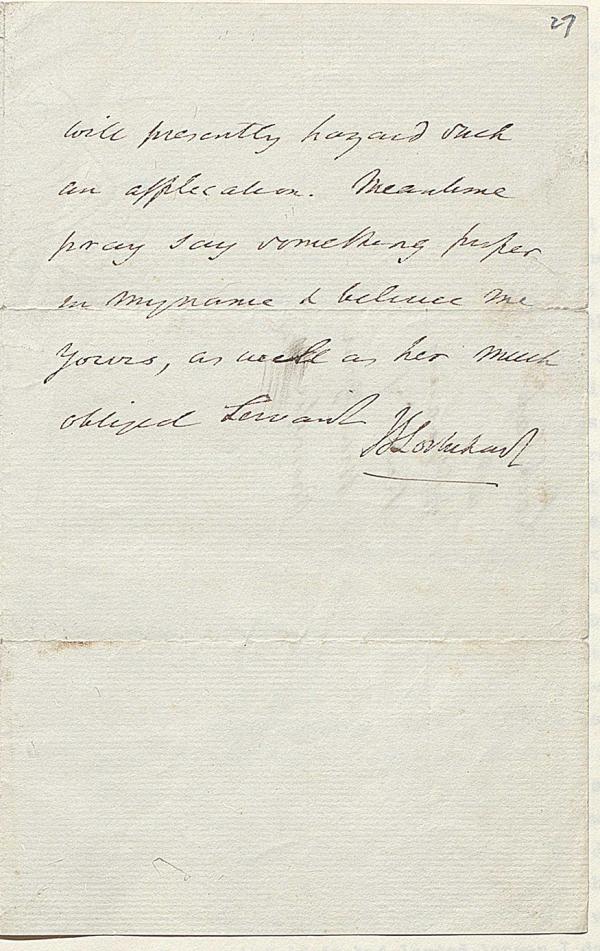 27
will presently hazard such
an application. Meantime
pray say something proper
in my name & believe me
Yours, as well as her much
obliged Servant
JGLockhart